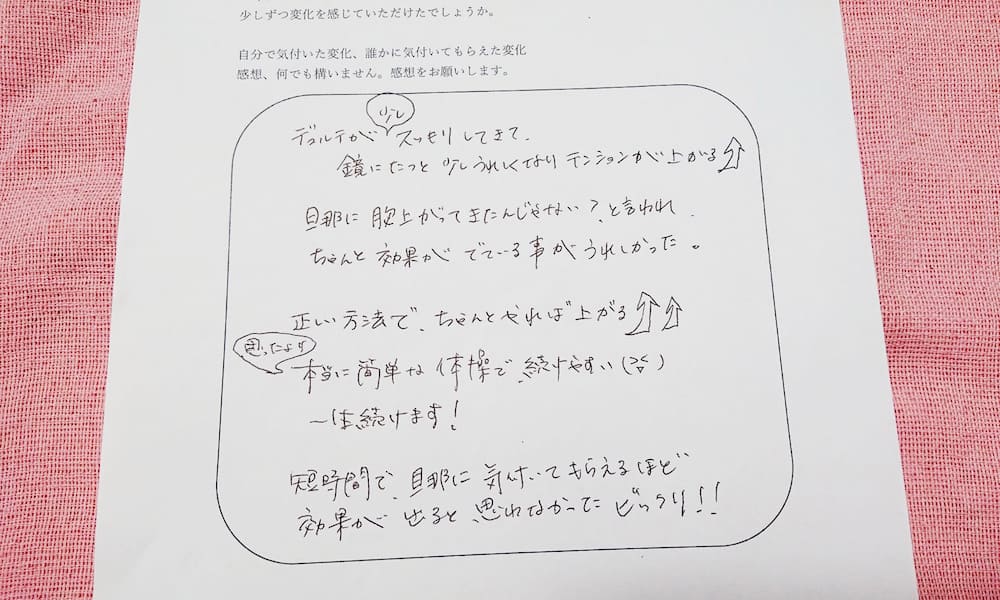 少しずつ変化を感じていただけたでしょうか。
自分で気付いた変化、誰かに気付いてもらえた変化
感想、何でも構いません。感想をお願いします。
少し
デコルテが スッキリしてきて、
鏡にたつと 少しうれしくなり テンションが上がる⇧
旦那に 胸上がってきたんじゃない?と言われ
ちゃんと 効果が でている事が うれしかった。
正しい方法で、ちゃんとやれば上がる⇧⇧
思ったより
本当に簡単な 体操で、続けやすい(^^)
一生続けます!
短時間で、旦那に 気付いてもらえるほど
効果が 出ると 思わなかった びっくり!!